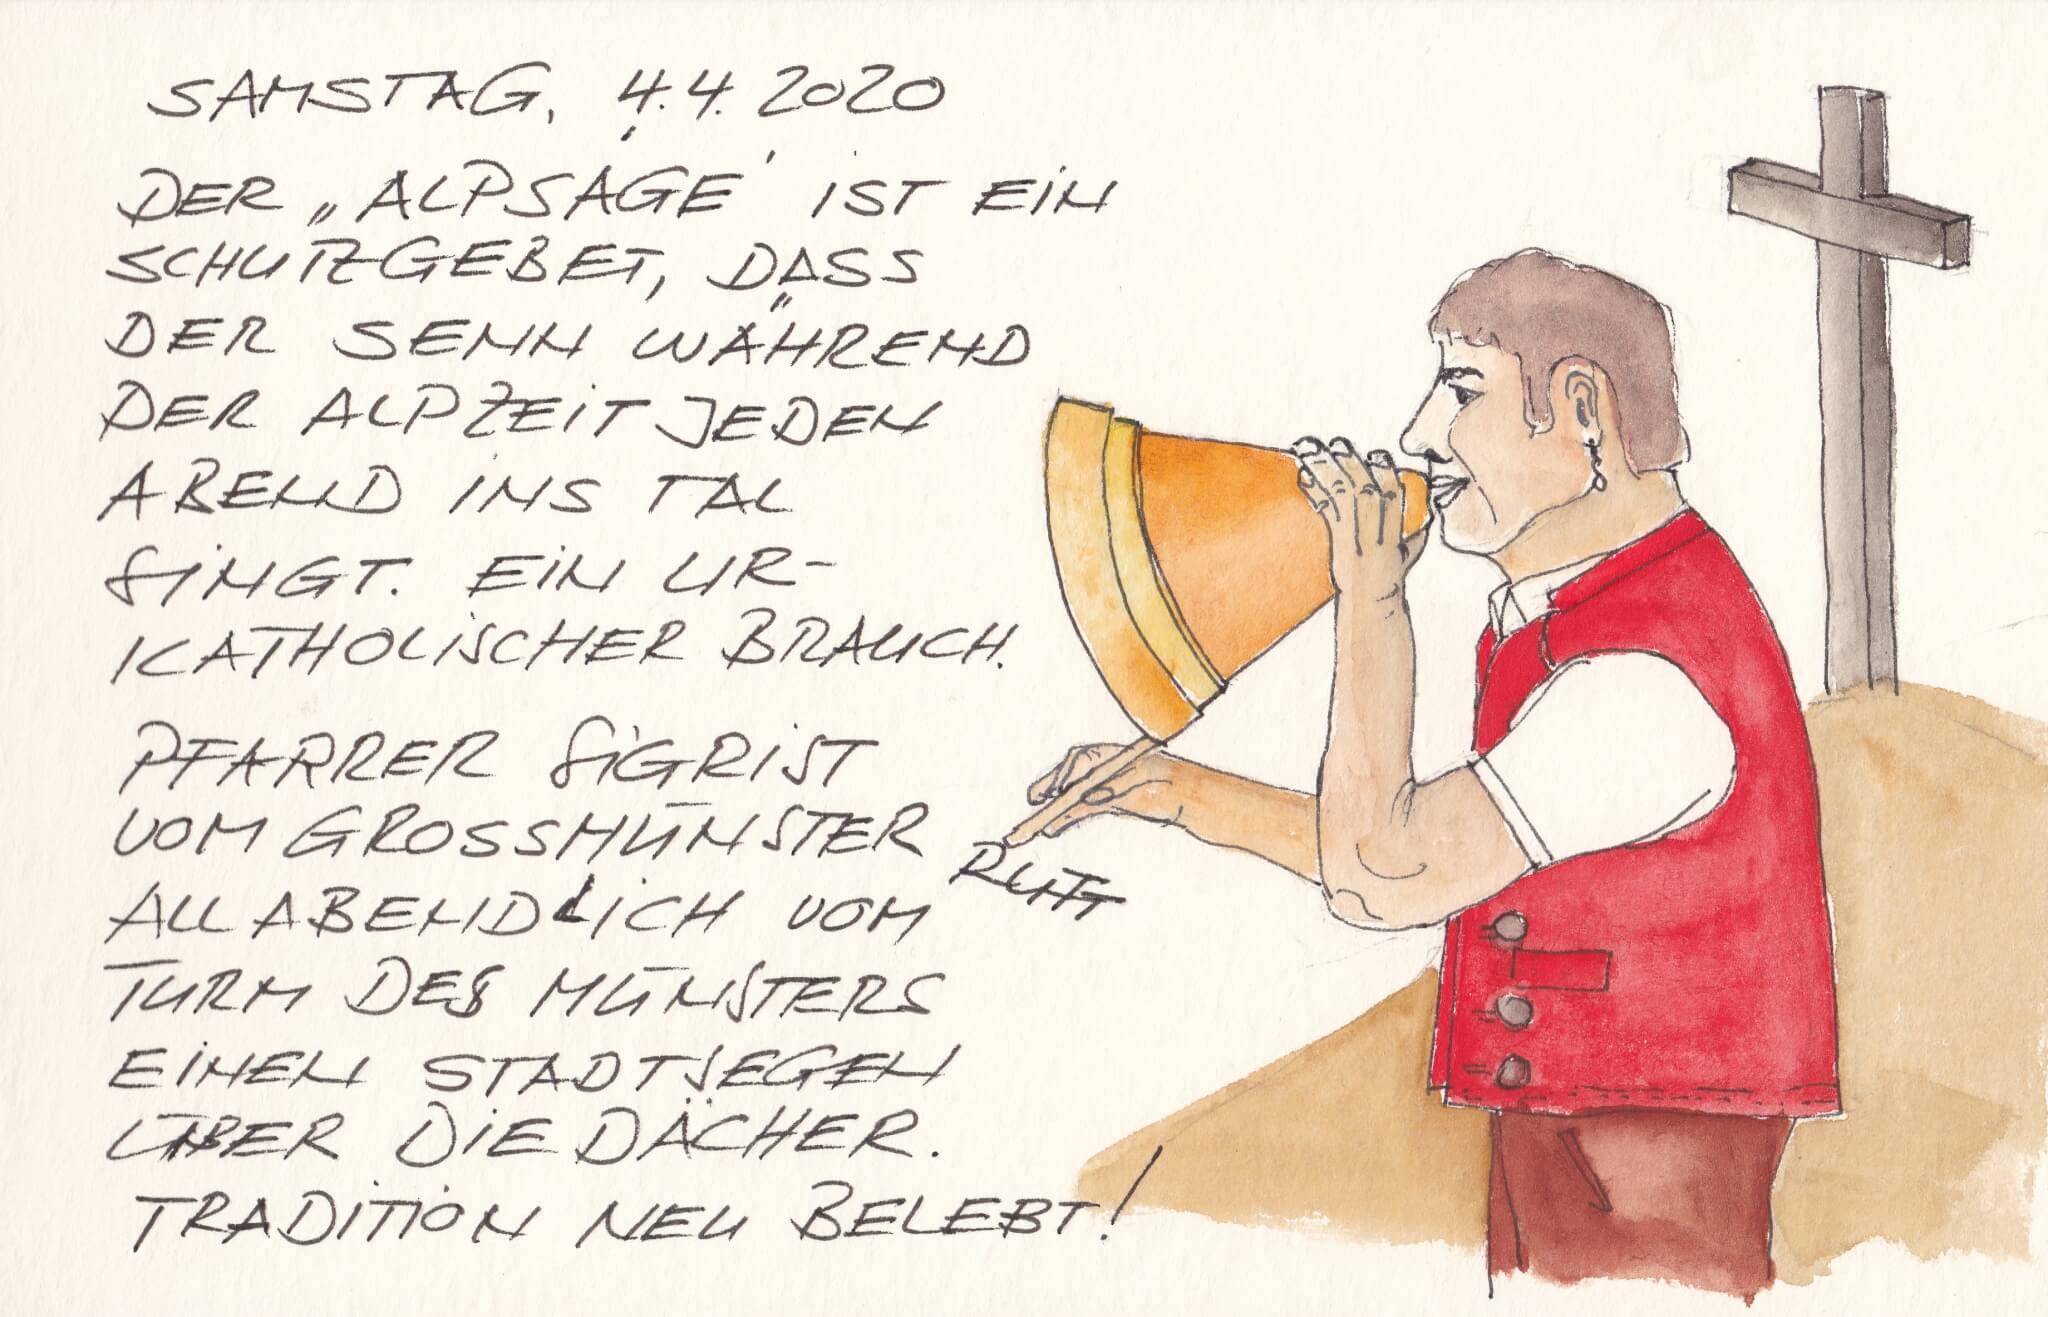 SAMSTAG, 4.4.2020
DER „ALPSÄGE" IST EIN
SCHUTZGEBET, DASS
DER SENN WÄHREND
DER ALPZEIT JEDEN
ABEND INS TAL
SINGT. EIN UR-
KATHOLISCHER BRAUCH.
PFARRER SIGRIST
VOM GROSSMÜNSTER
ALLABENDLICH VOM
TURM DES MÜNSTERS
EINEN STADTSEGEN
ÜBER DIE DÄCHER.
TRADITION NEU BELEBT!
RUTH